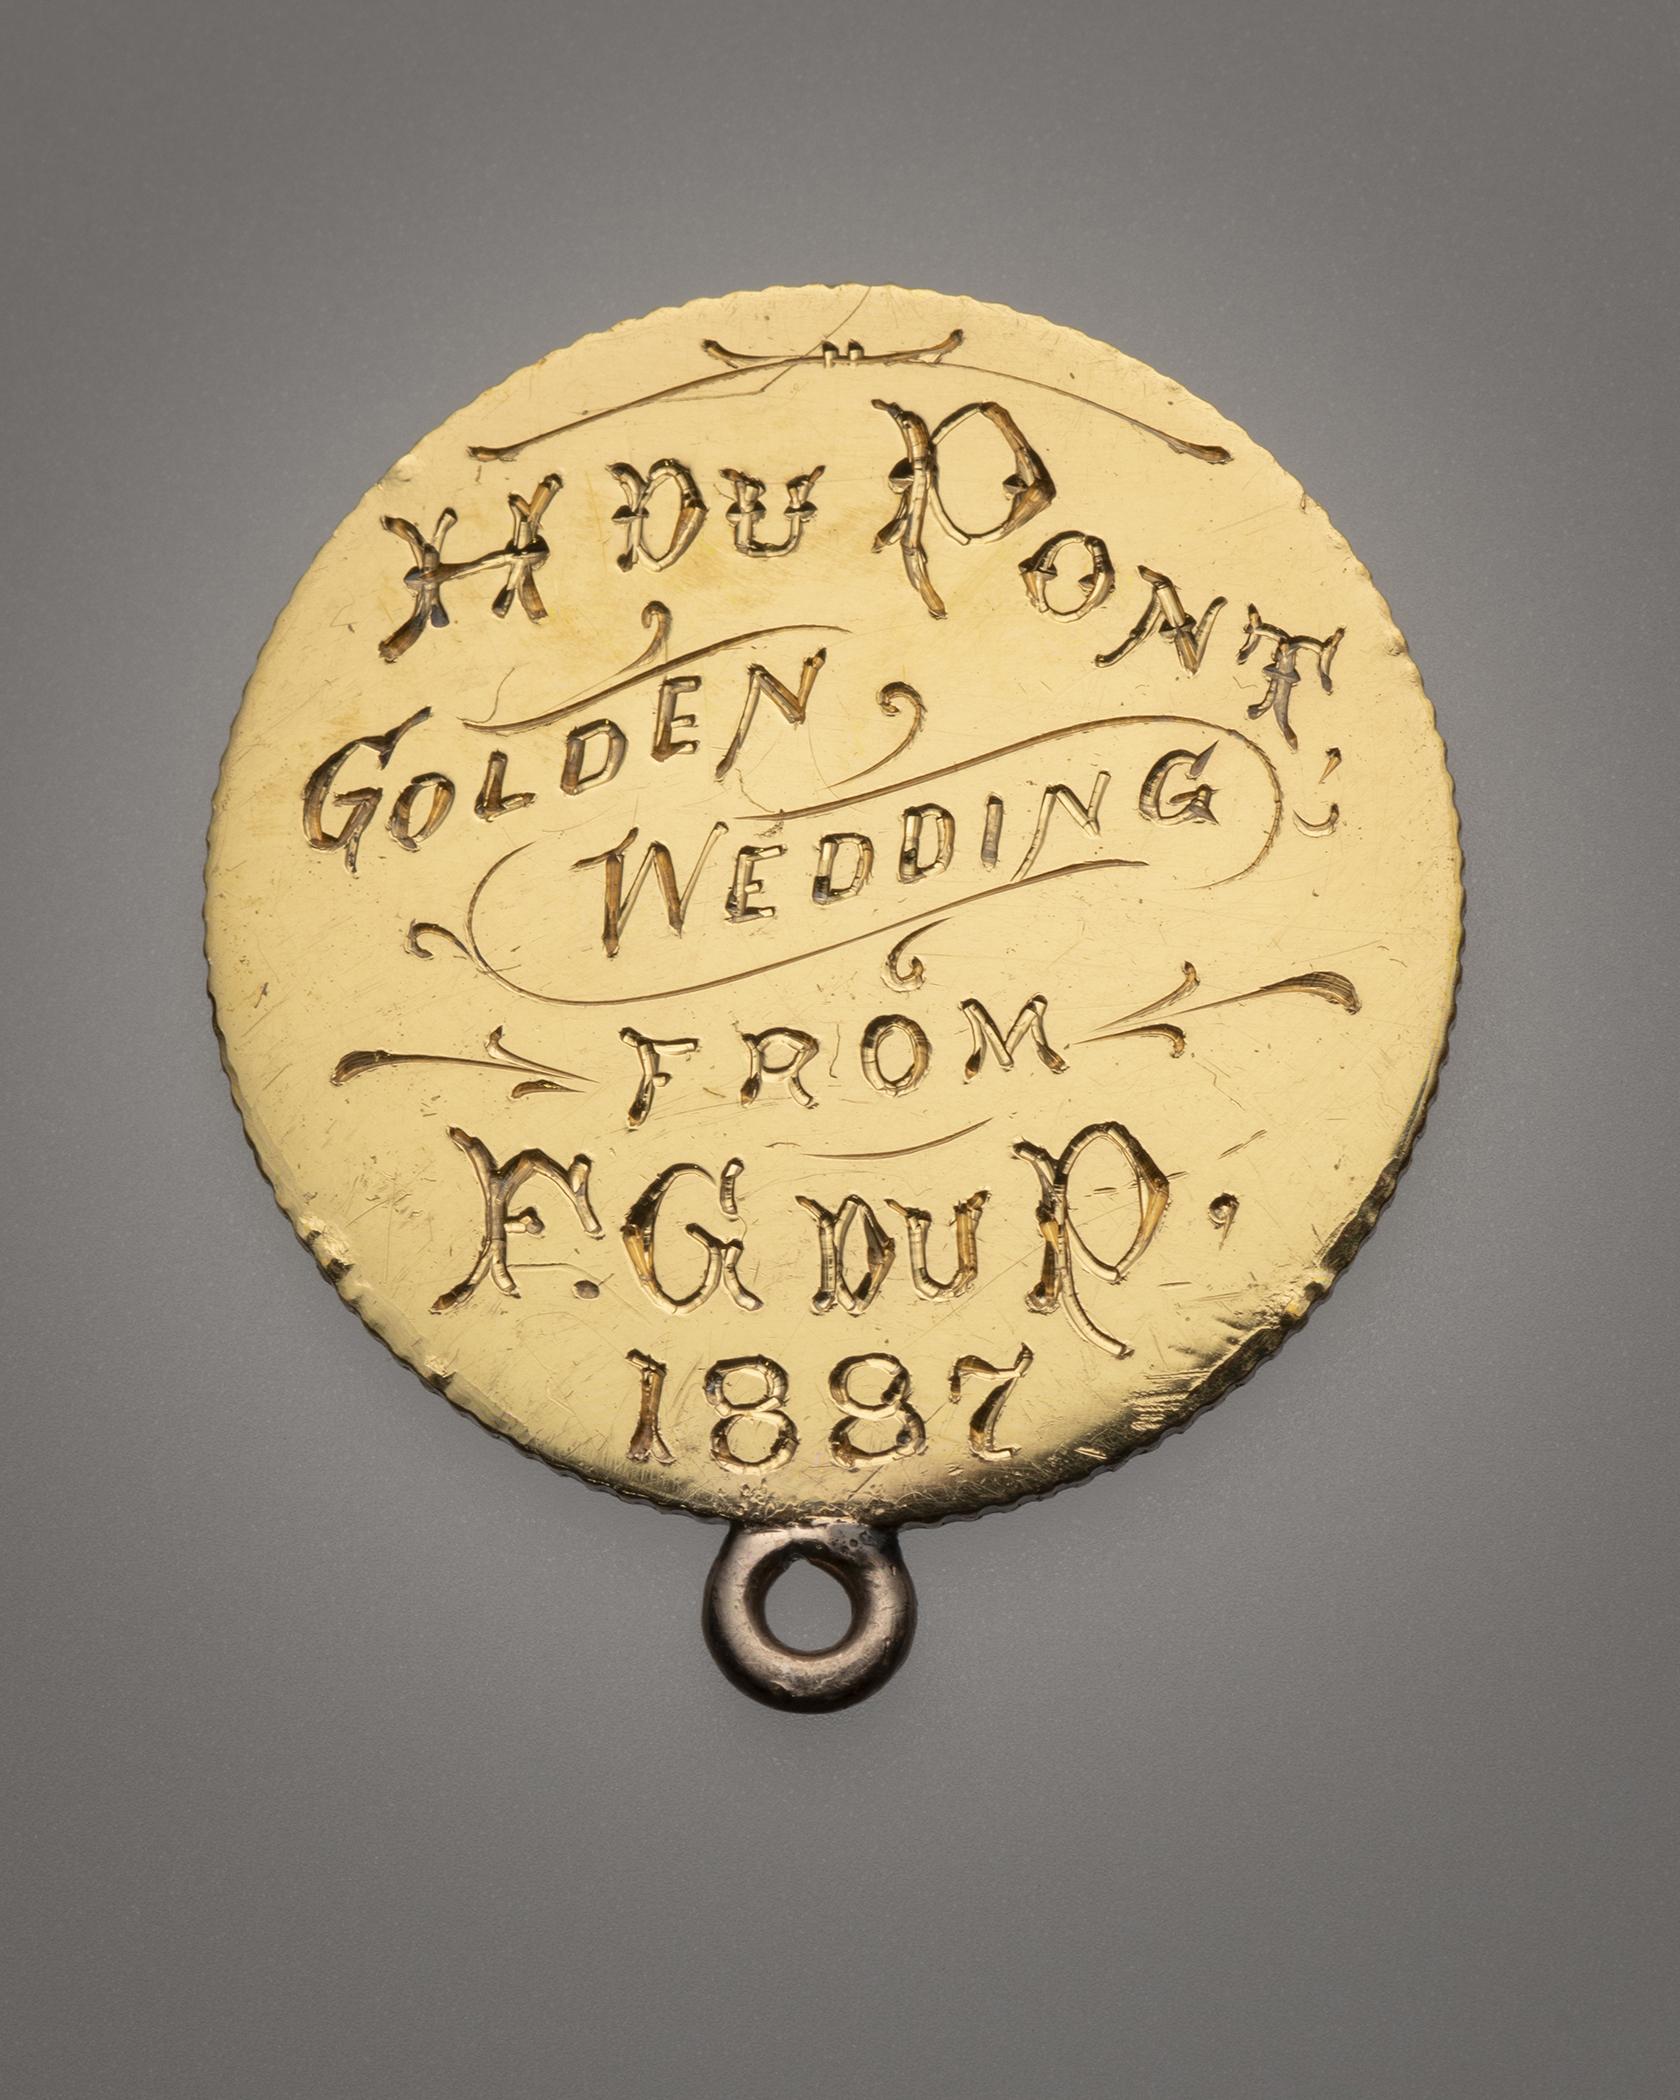 H DU PONT
GOLDEN
WEDDING
FROM
F. G DU P.
1887